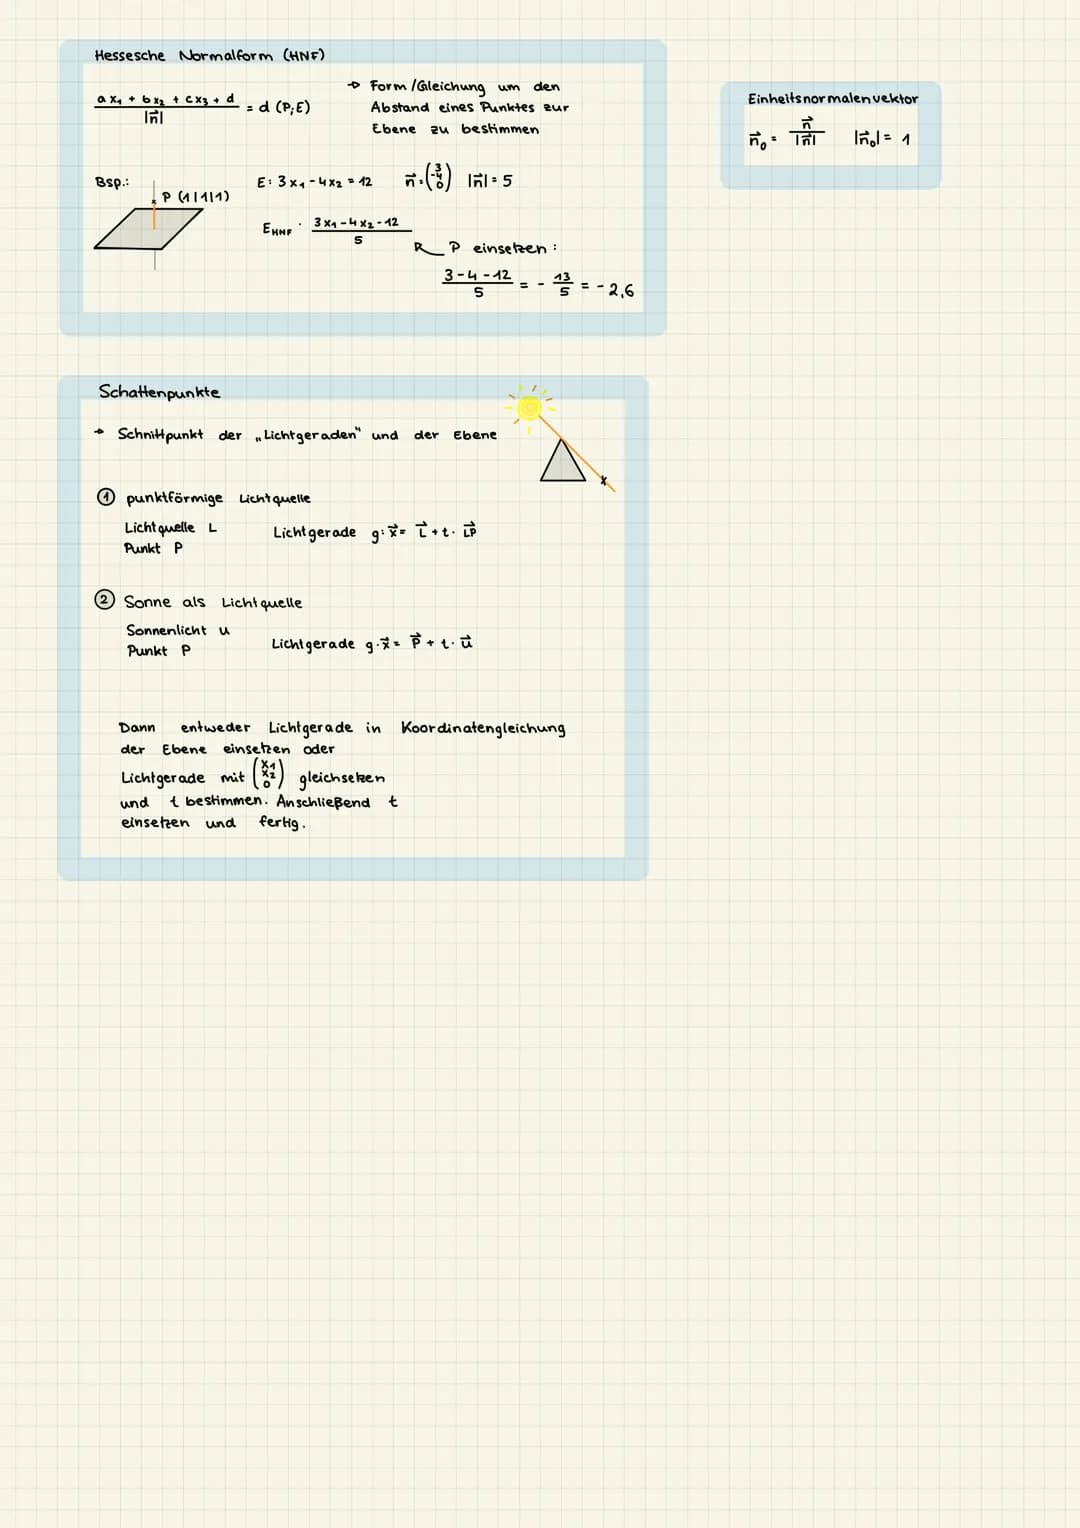 Hessesche Normalform (HNF)
(ax₁ + bx₂ + cx₃ + d) / |n⃗| = d (P;E)
→ Form/Gleichung um den
Abstand eines Punktes zur
Ebene zu bestimmen
Bsp.:
P (1|1|1)
E: 3x₁ - 4x₂ = 12 n⃗ = (3 -4 0) |n⃗| = 5
E_HNF : (3x₁ - 4x₂ - 12) / 5
P einsetzen :
(3 - 4 - 12) / 5 = - 13/5 = - 2,6
Einheitsnormalenvektor
n⃗₀ = n⃗ / |n⃗| |n⃗₀| = 1
Schattenpunkte
→ Schnittpunkt der „Lichtgeraden" und der Ebene
① punktförmige Lichtquelle
Lichtquelle L
Punkt P
Lichtgerade g: x⃗ = L⃗ + t · LP⃗
② Sonne als Lichtquelle
Sonnenlicht u
Punkt P
Lichtgerade g: x⃗ = P⃗ + t · u⃗
Dann entweder Lichtgerade in Koordinatengleichung
der Ebene einsetzen oder
Lichtgerade mit (x₁ x₂ 0) gleichsetzen
und t bestimmen. Anschließend t
einsetzen und fertig.